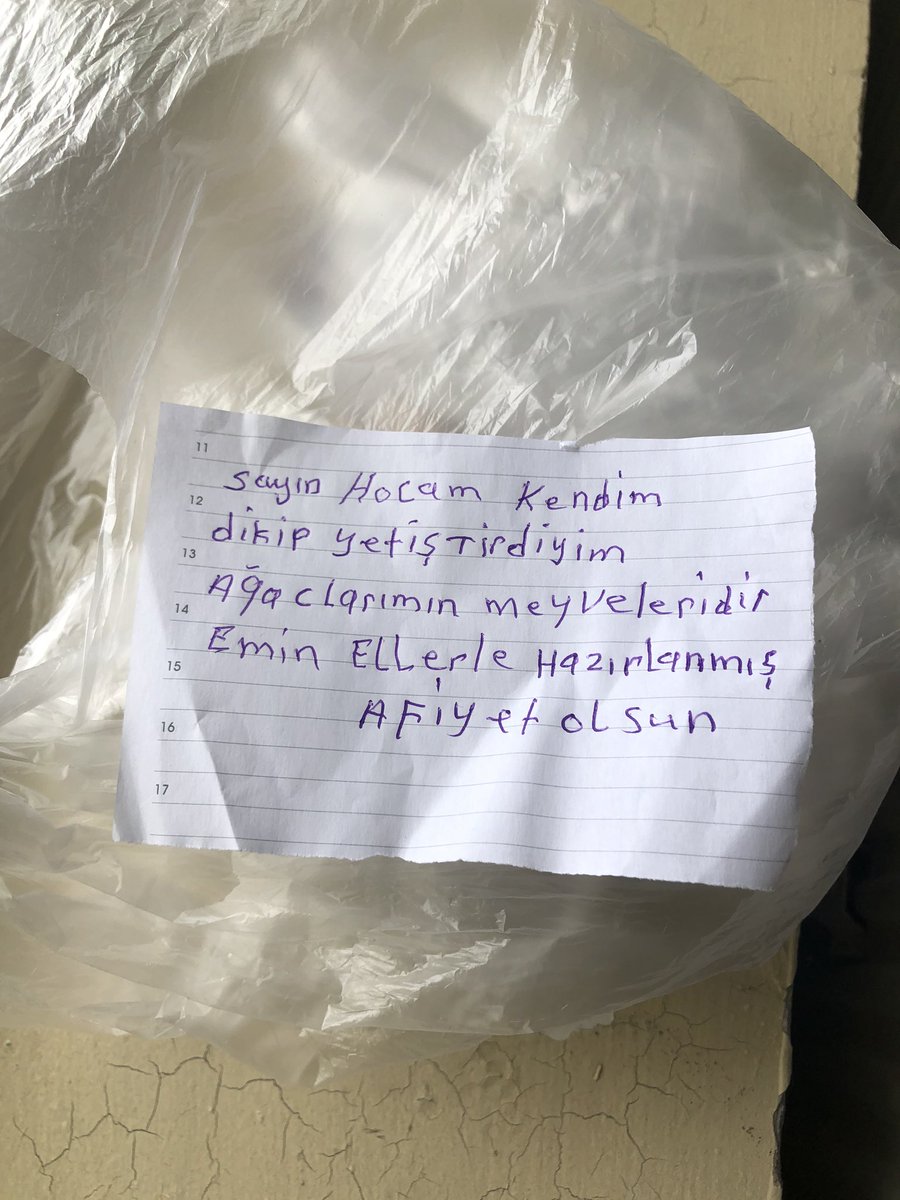 11
sayın Hocam Kendim
12
dikip yetişTirdiyim
13
Ağaclarımın meyveleridir
14
Emin ELLerle Hazırlanmış
15
AFiyet olsun
16
17